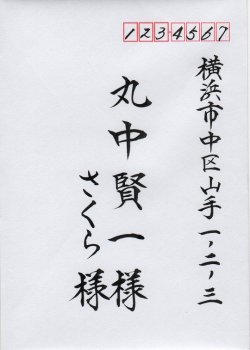 123-4567
横浜市中区山手一、二、三
丸中賢一様
さくら様